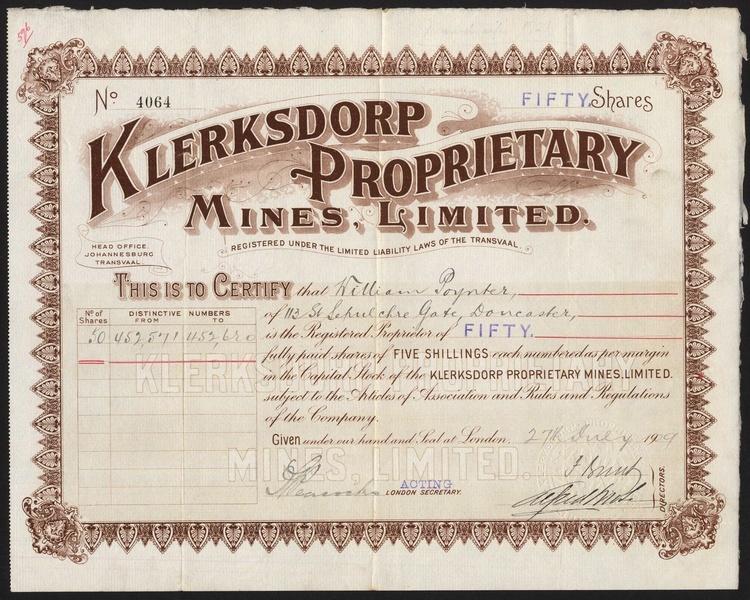 596
No 4064 FIFTY. Shares
KLERKSDORP
PROPRIETARY
MINES, LIMITED.
REGISTERED UNDER THE LIMITED LIABILITY LAWS OF THE TRANSVAAL.
HEAD OFFICE.
JOHANNESBURG
TRANSVAAL.
THIS IS TO CERTIFY that William Poynter,
of 113 St Sepulchre Gate, Doncaster,
is the Registered Proprietor of FIFTY.
fully paid shares of FIVE SHILLINGS each numbered as per margin
in the Capital Stock of the KLERKSDORP PROPRIETARY MINES, LIMITED.
subject to the Articles of Association and Rules and Regulations
of the Company.
No of Shares DISTINCTIVE NUMBERS FROM TO
50 452,571 452,620
KLERKSDORP PROPRIETARY
MINES, LIMITED.
Given under our hand and Seal at London. 27th July 1909
ACTING
LONDON SECRETARY.
DIRECTORS.